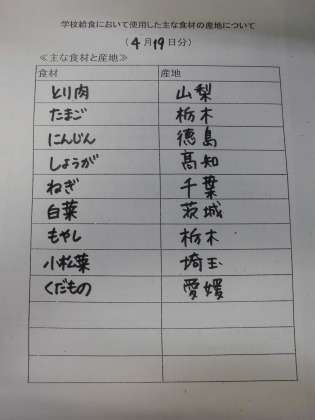 学校給食において使用した主な食材の産地について
(4月19日分)
≪主な食材と産地≫
食材 産地
とり肉 山梨
たまご 栃木
にんじん 徳島
しょうが 高知
ねぎ 千葉
白菜 茨城
もやし 栃木
小松菜 埼玉
くだもの 愛媛